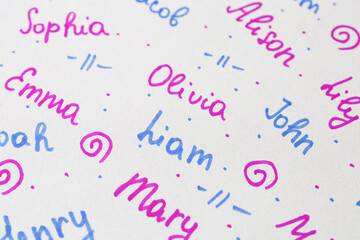 Jacob
Sophia
Alison
Emma
Olivia
Lily
John
Noah
Liam
Mary
Henry